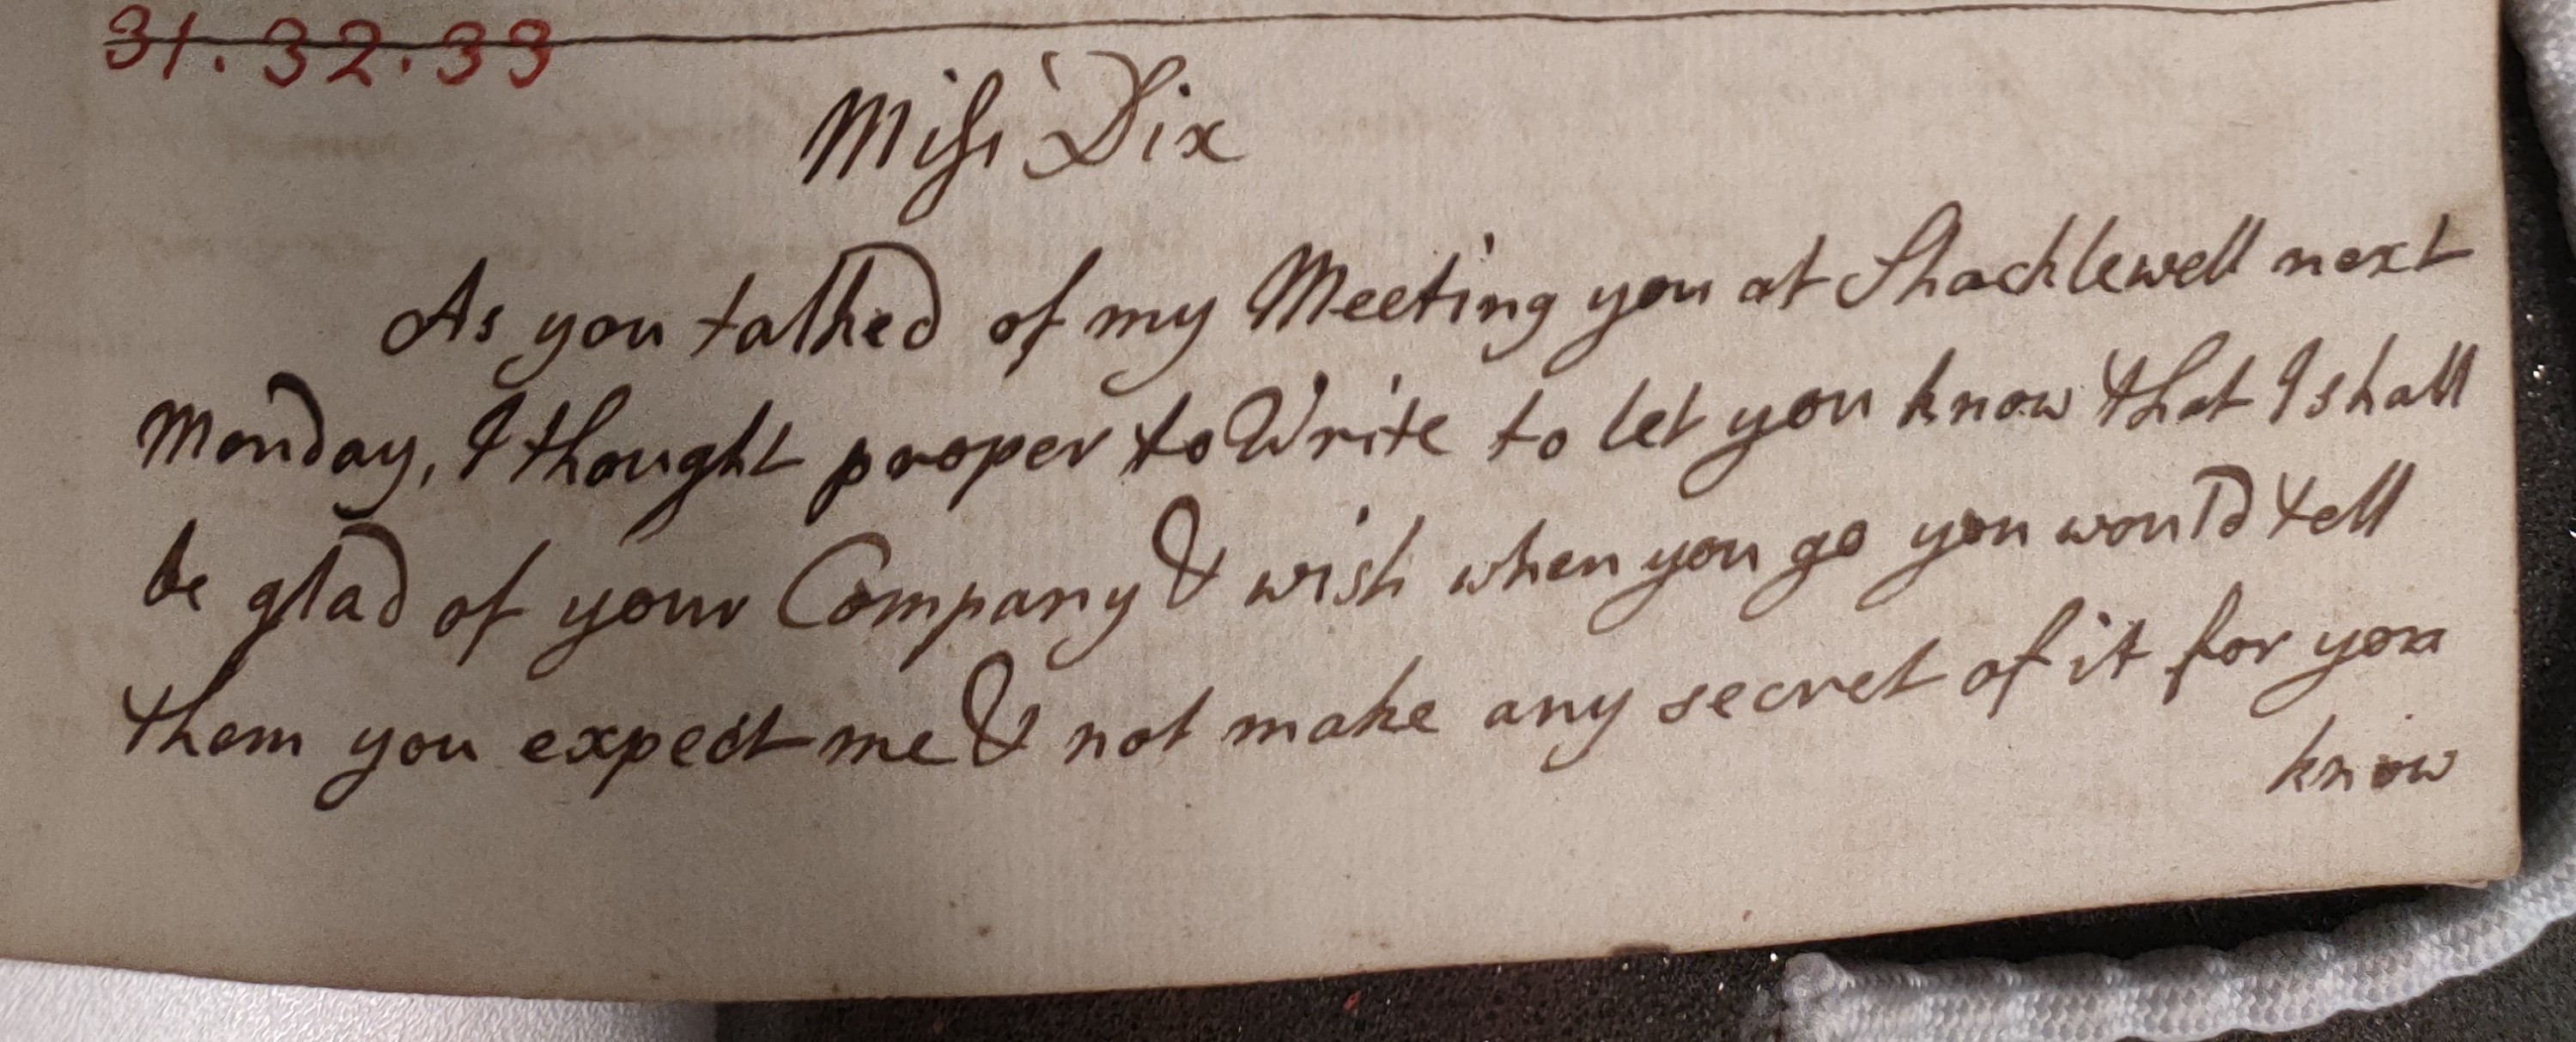 31. 32. 33
Miſs Dix
As you talked of my Meeting you at Shacklewell next
Monday, I thought proper to Write to let you know that I shall
be glad of your Company & wish when you go you would tell
them you expect me & not make any secret of it for you
know